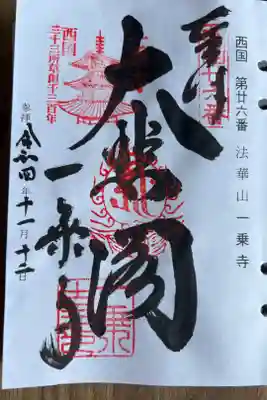 西国 第廿六番 法華山 一乗寺
奉拝
大悲閣
一乗寺
西国
三十三所草創千三百年
参拝 令和四年十一月十二日